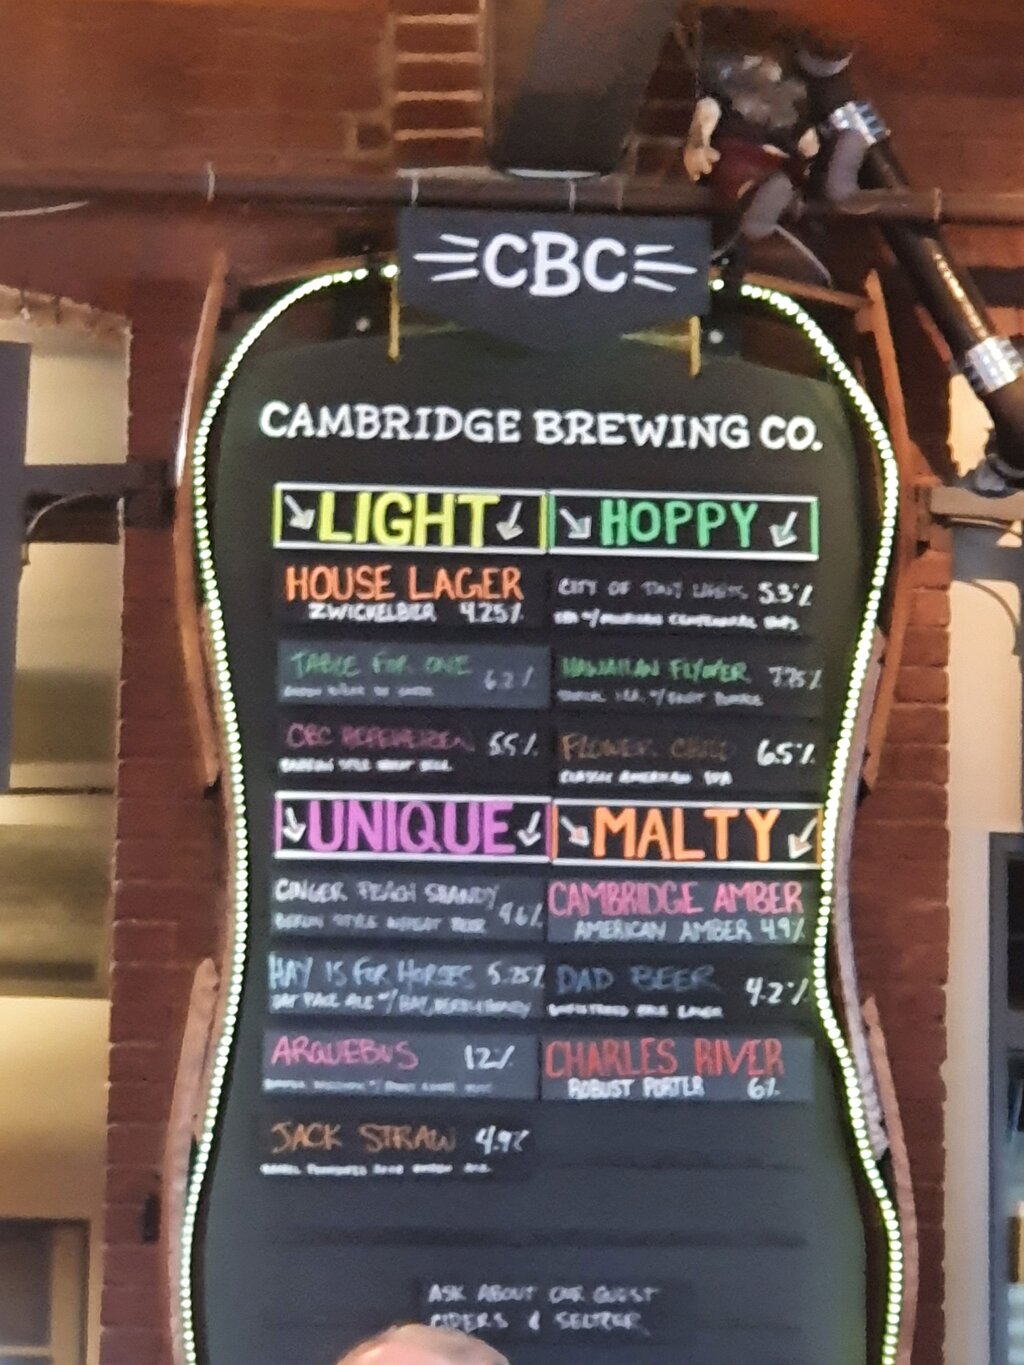 CBC
CAMBRIDGE BREWING CO.
LIGHT
HOUSE LAGER
ZWICKELBIER 4.25%
TABLE FOR ONE
CBC HEFEWEIZEN 5.5%
HOPPY
CITY OF TINY LIGHTS 5.3%
CENTENNIAL HOPS
HAWAIIAN FLYOVER 7.75%
FLOWER CHILD 6.5%
CLASSIC AMERICAN IPA
UNIQUE
GINGER PEACH SHANDY 4.6%
BERLIN STYLE WHEAT BEER
HAY IS FOR HORSES 5.25%
PALE ALE W/ HAY,
ARQUEBUS 12%
JACK STRAW 4.9%
MALTY
CAMBRIDGE AMBER
AMERICAN AMBER 4.9%
DAD BEER 4.2%
LAGER
CHARLES RIVER
ROBUST PORTER 6%
ASK ABOUT OUR GUEST
CIDERS & SELTZER